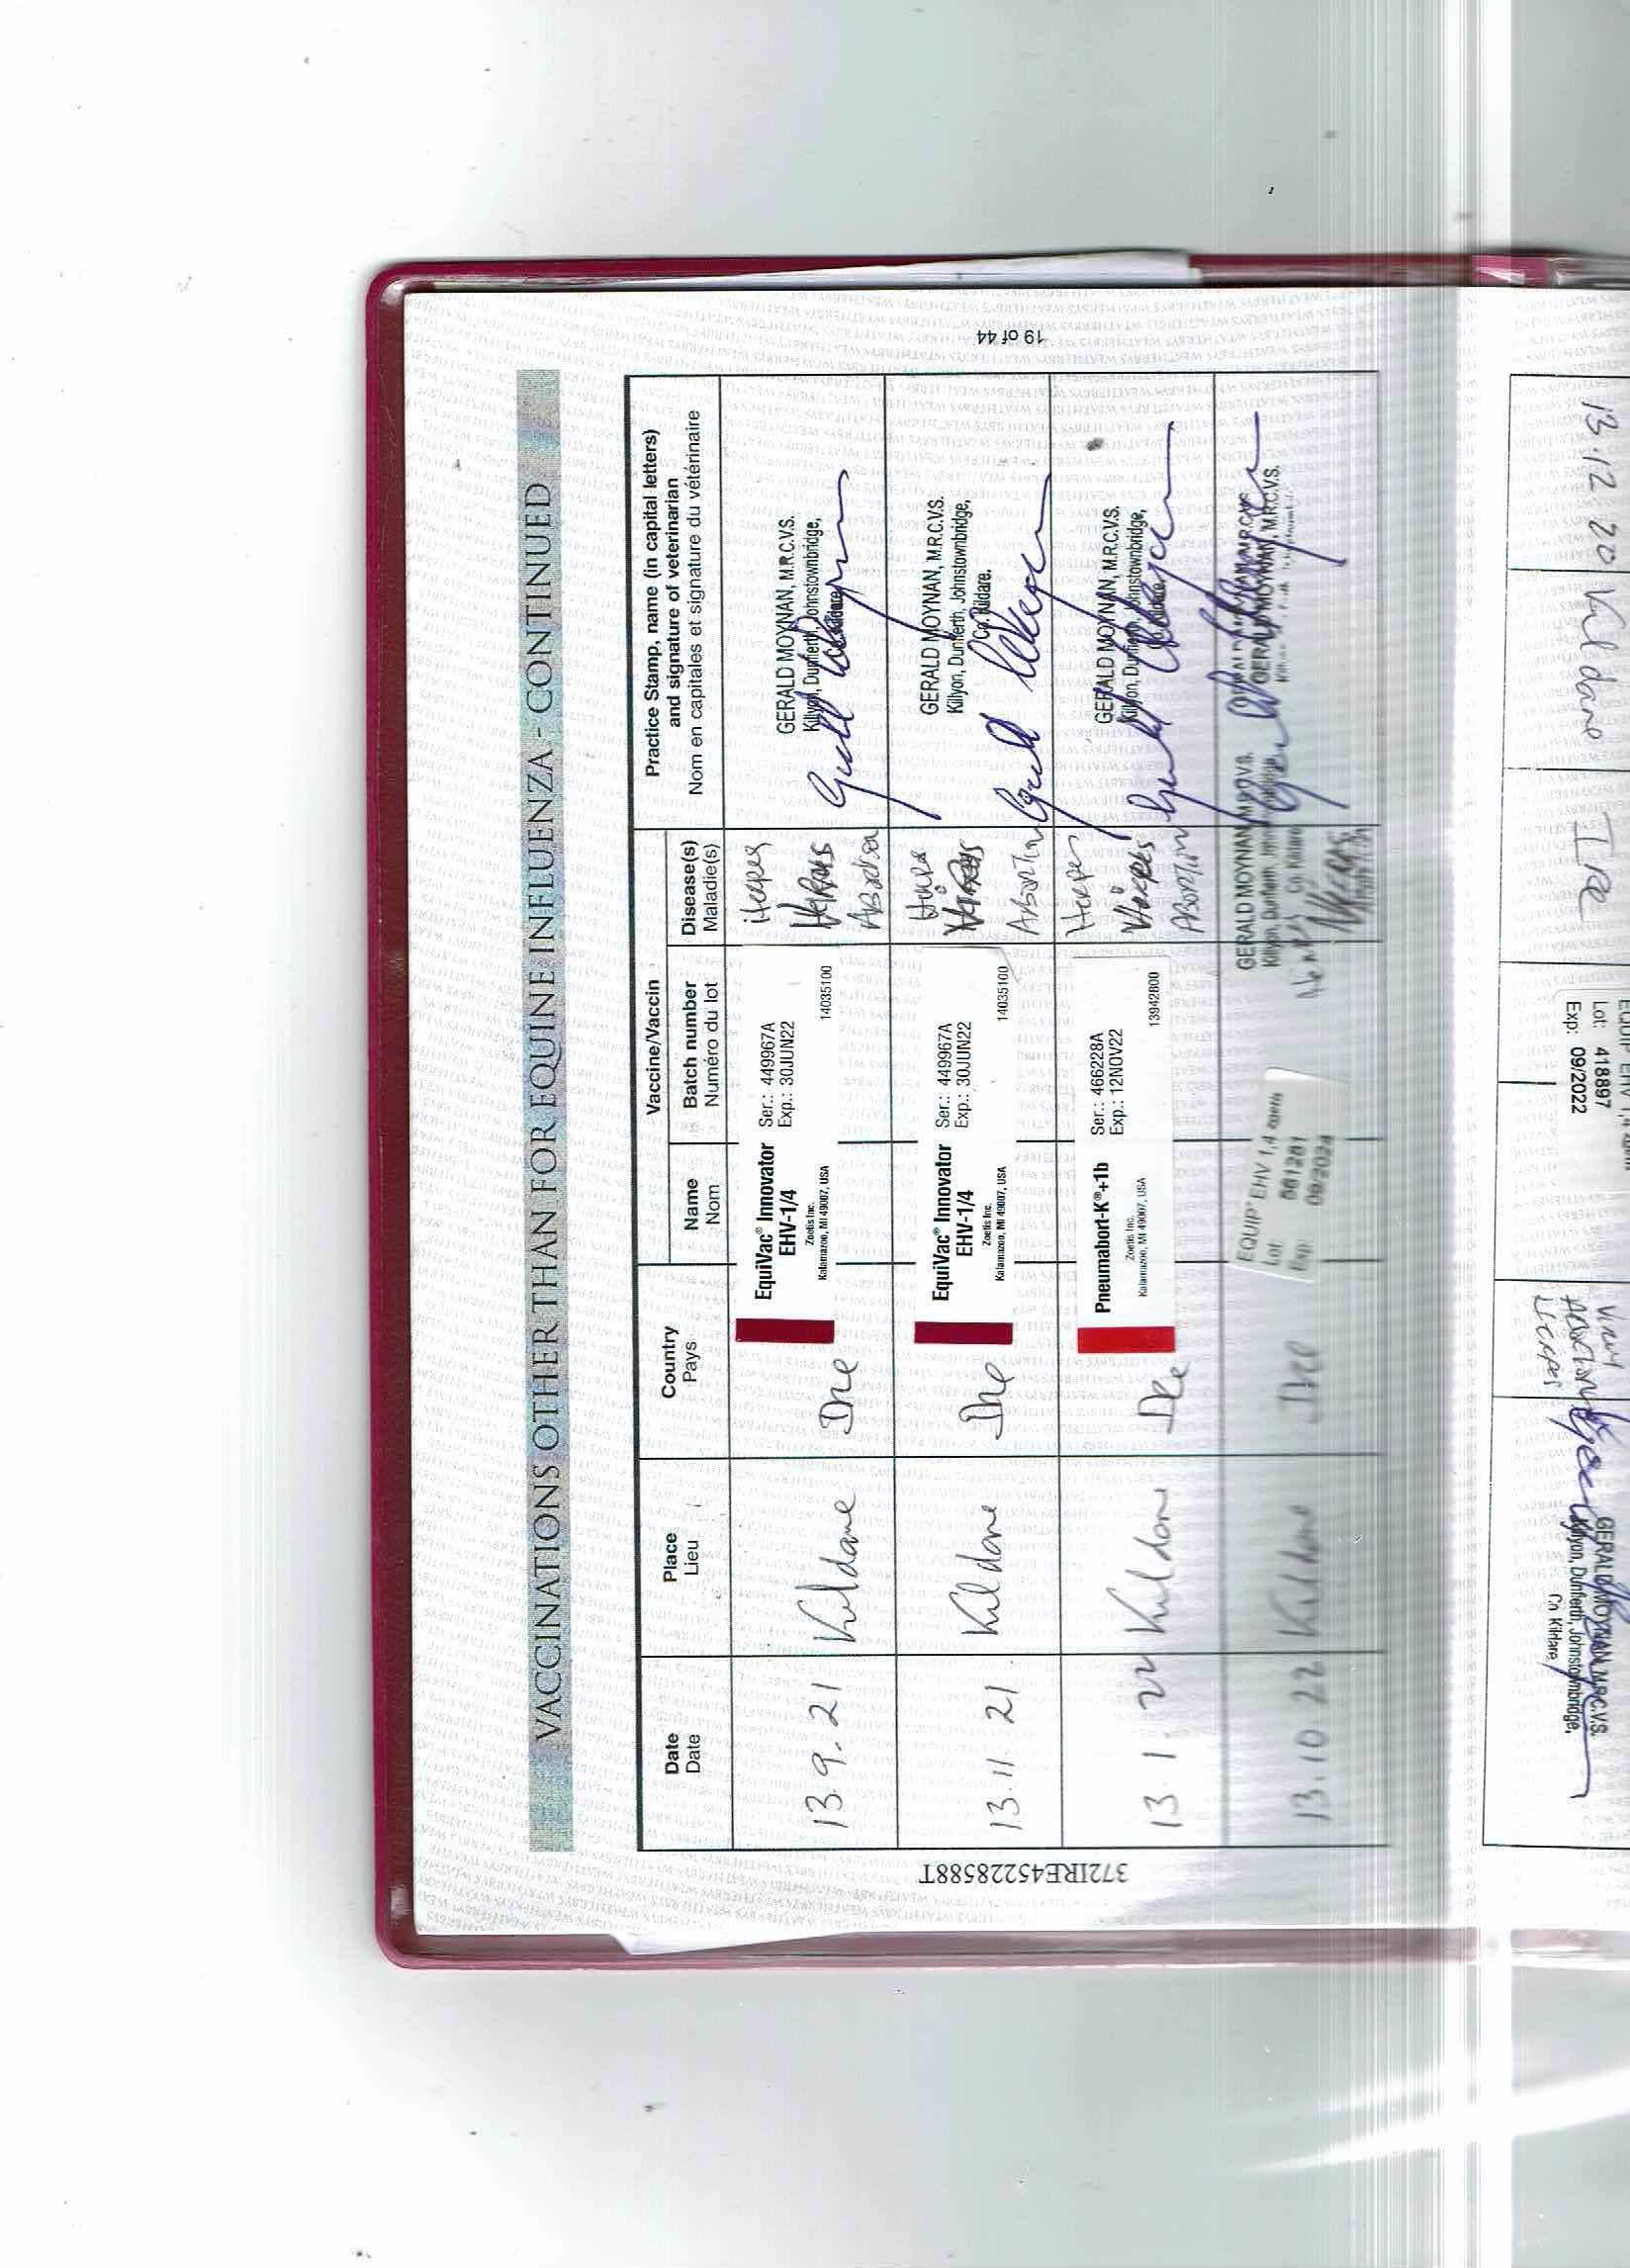 VACCINATIONS OTHER THAN FOR EQUINE INFLUENZA - CONTINUED
Date
Date
Place
Lieu
Country
Pays
Vaccine/Vaccin
Name
Nom
Batch number
Numéro du lot
Disease(s)
Maladie(s)
Practice Stamp, name (in capital letters)
and signature of veterinarian
Nom en capitales et signature du vétérinaire
13.9.21 Kildare Ire
EquiVac® Innovator
EHV-1/4
Zoetis Inc.
Kalamazoo, MI 49007, USA
Ser.: 449967A
Exp.: 30JUN22
14035100
Herpes
Abortion
GERALD MOYNAN, M.R.C.V.S.
Killyon, Dunfierth, Johnstownbridge,
Co. Kildare.
13.11 21 Kildare Ire
EquiVac® Innovator
EHV-1/4
Zoetis Inc.
Kalamazoo, MI 49007, USA
Ser.: 449967A
Exp.: 30JUN22
14035100
Abortion
GERALD MOYNAN, M.R.C.V.S.
Killyon, Dunfierth, Johnstownbridge,
Co. Kildare.
13 1. 22 Kildare Ire
Pneumabort-K®+1b
Zoetis Inc.
Kalamazoo, MI 49007, USA
Ser.: 466228A
Exp.: 12NOV22
13942800
Herpes
Abortion
GERALD MOYNAN, M.R.C.V.S.
Killyon, Dunfierth, Johnstownbridge,
13.10 22 Kildare Ire
EQUIP EHV 1,4
Lot:
Exp:
GERALD MOYNAN
Killyon, Dunfierth,
Co. Kildare
GERALD MOYNAN, M.R.C.V.S.
372IRE45228588T
19 of 44
13.12 20 Kildare Ire
EQUIP EHV 1,4
Lot: 418897
Exp: 09/2022
Virus
Abortion
Herpes
GERALD MOYNAN, M.R.C.V.S.
Killyon, Dunfierth, Johnstownbridge,
Co. Kildare.